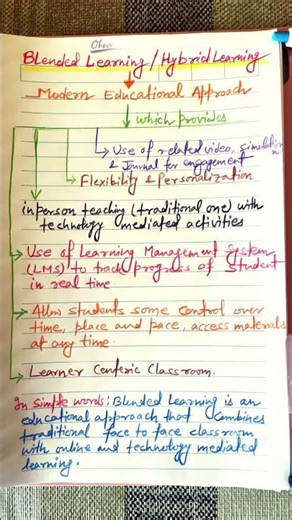 Blended Learning / Hybrid Learning
Modern Educational Approach
which provides
Use of related video, simulation
& Journal for engagement
Flexibility & Personalization
inperson teaching (traditional one) with
technology mediated activities
Use of Learning Management System
(LMS) to track progress of Student
in real time
Allow students some control over
time, place and pace, access materials
at any time.
Learner Centeric Classroom.
In simple words: Blended Learning is an
educational approach that combines
traditional face to face classroom
with online and technology mediated
learning.